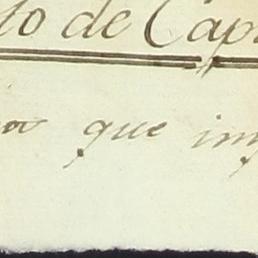 to de Cap
que im